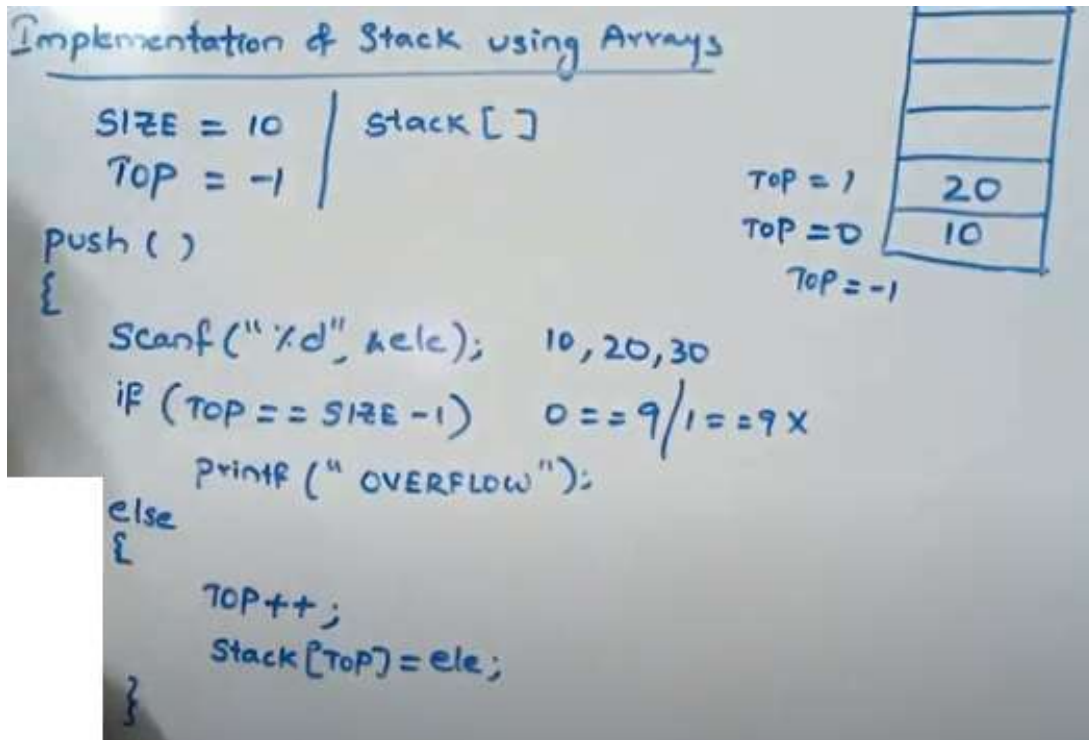 Implementation of Stack using Arrays
SIZE = 10 | Stack [ ]
TOP = -1
TOP = 1 20
TOP = 0 10
TOP = -1
push ( )
{
Scanf ("%d", &ele); 10, 20, 30
if (TOP == SIZE -1) 0 == 9 / 1 == 9 X
printf (" OVERFLOW");
else
{
TOP++;
Stack [TOP] = ele;
}